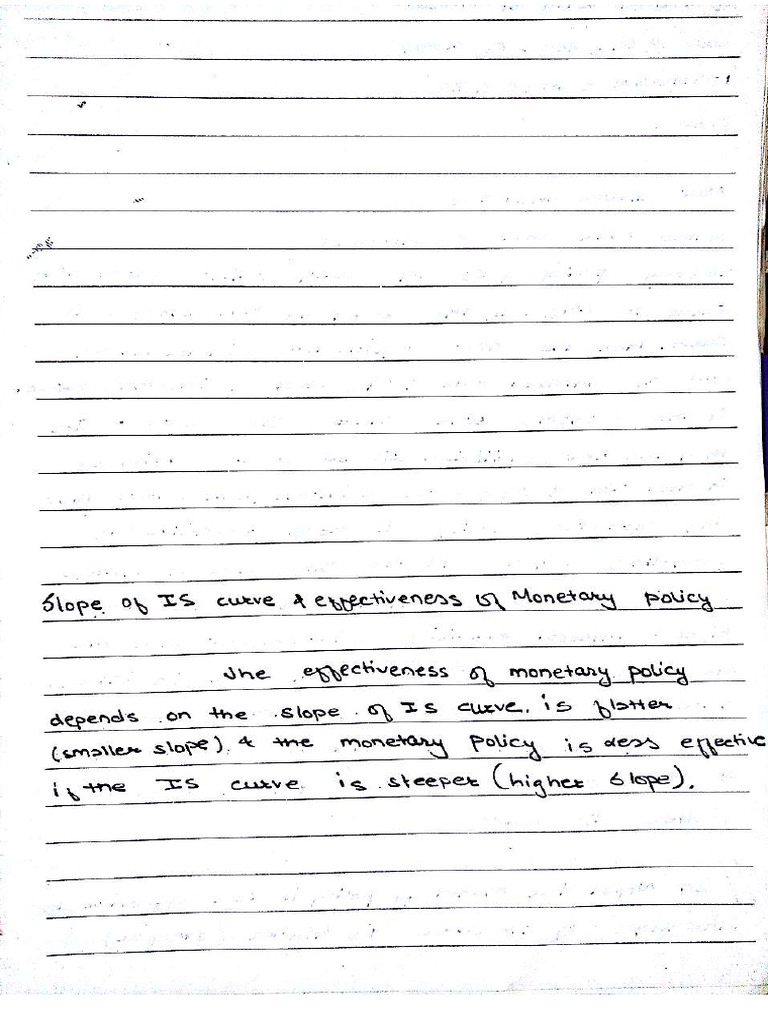 Slope of IS curve & effectiveness of Monetary policy
The effectiveness of monetary policy
depends on the slope of IS curve. is flatter
(smaller slope) & the monetary policy is less effective
if the IS curve is steeper (higher slope).